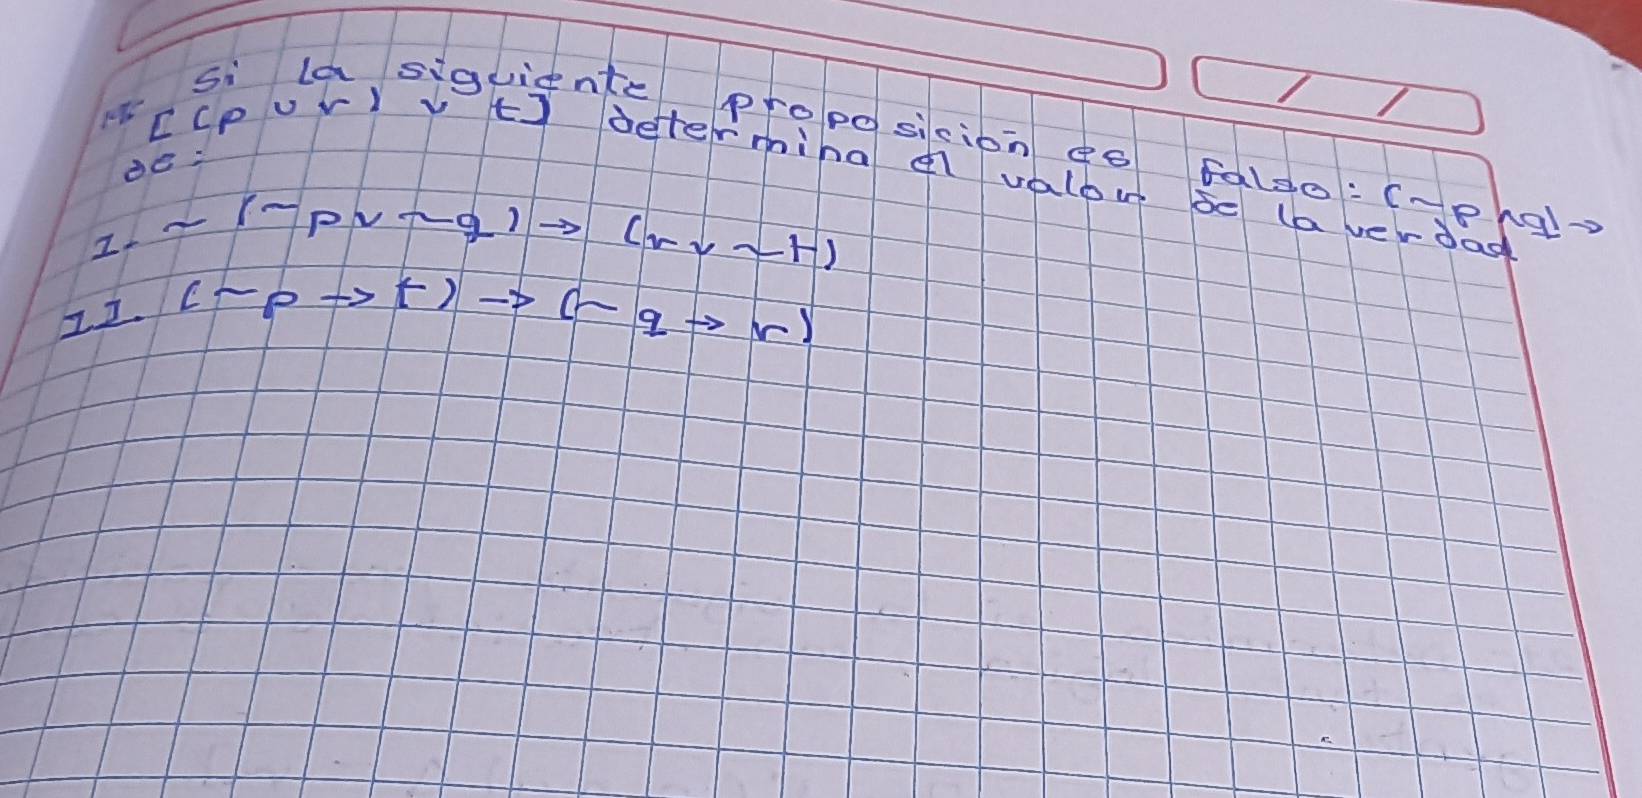 Si la siguiente proposición es Falso: (~p ∧ q) →
[(p ∨ r) ∨ t] determina el valor de la verdad
de:
I. ~(~p ∨ ~q) → (r ∨ ~t)
II. (~p → t) → (~q → r)